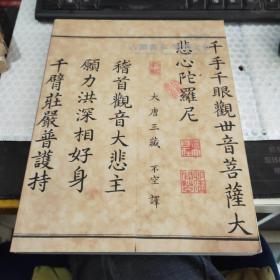 千手千眼觀世音菩薩大
悲心陀羅尼
大唐三藏 不空 譯
稽首觀音大悲主
願力洪深相好身
千臂莊嚴普護持